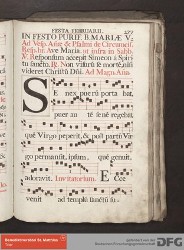 FESTA FEBRUARII.
IN FESTO PURIF. B. MARIÆ V.
Ad Vesp. Añæ & Psalmi de Circumcis.
Resp. br. Ave Maria. ut infra in Sabb.
V. Responsum accepit Simeon à Spiri
tu sancto. R. Non visurū se mortē, nisi
videret Christū Dñi. Ad Magn. Aña.
SEnex puerū porta bat,
puer au tē senē regebat,
quē Virgo peperit, & post partū Vir
go permansit, ipsum quē genuit,
adoravit. Invitatorium. ECce
venit ad templū sanctū su-
DFG